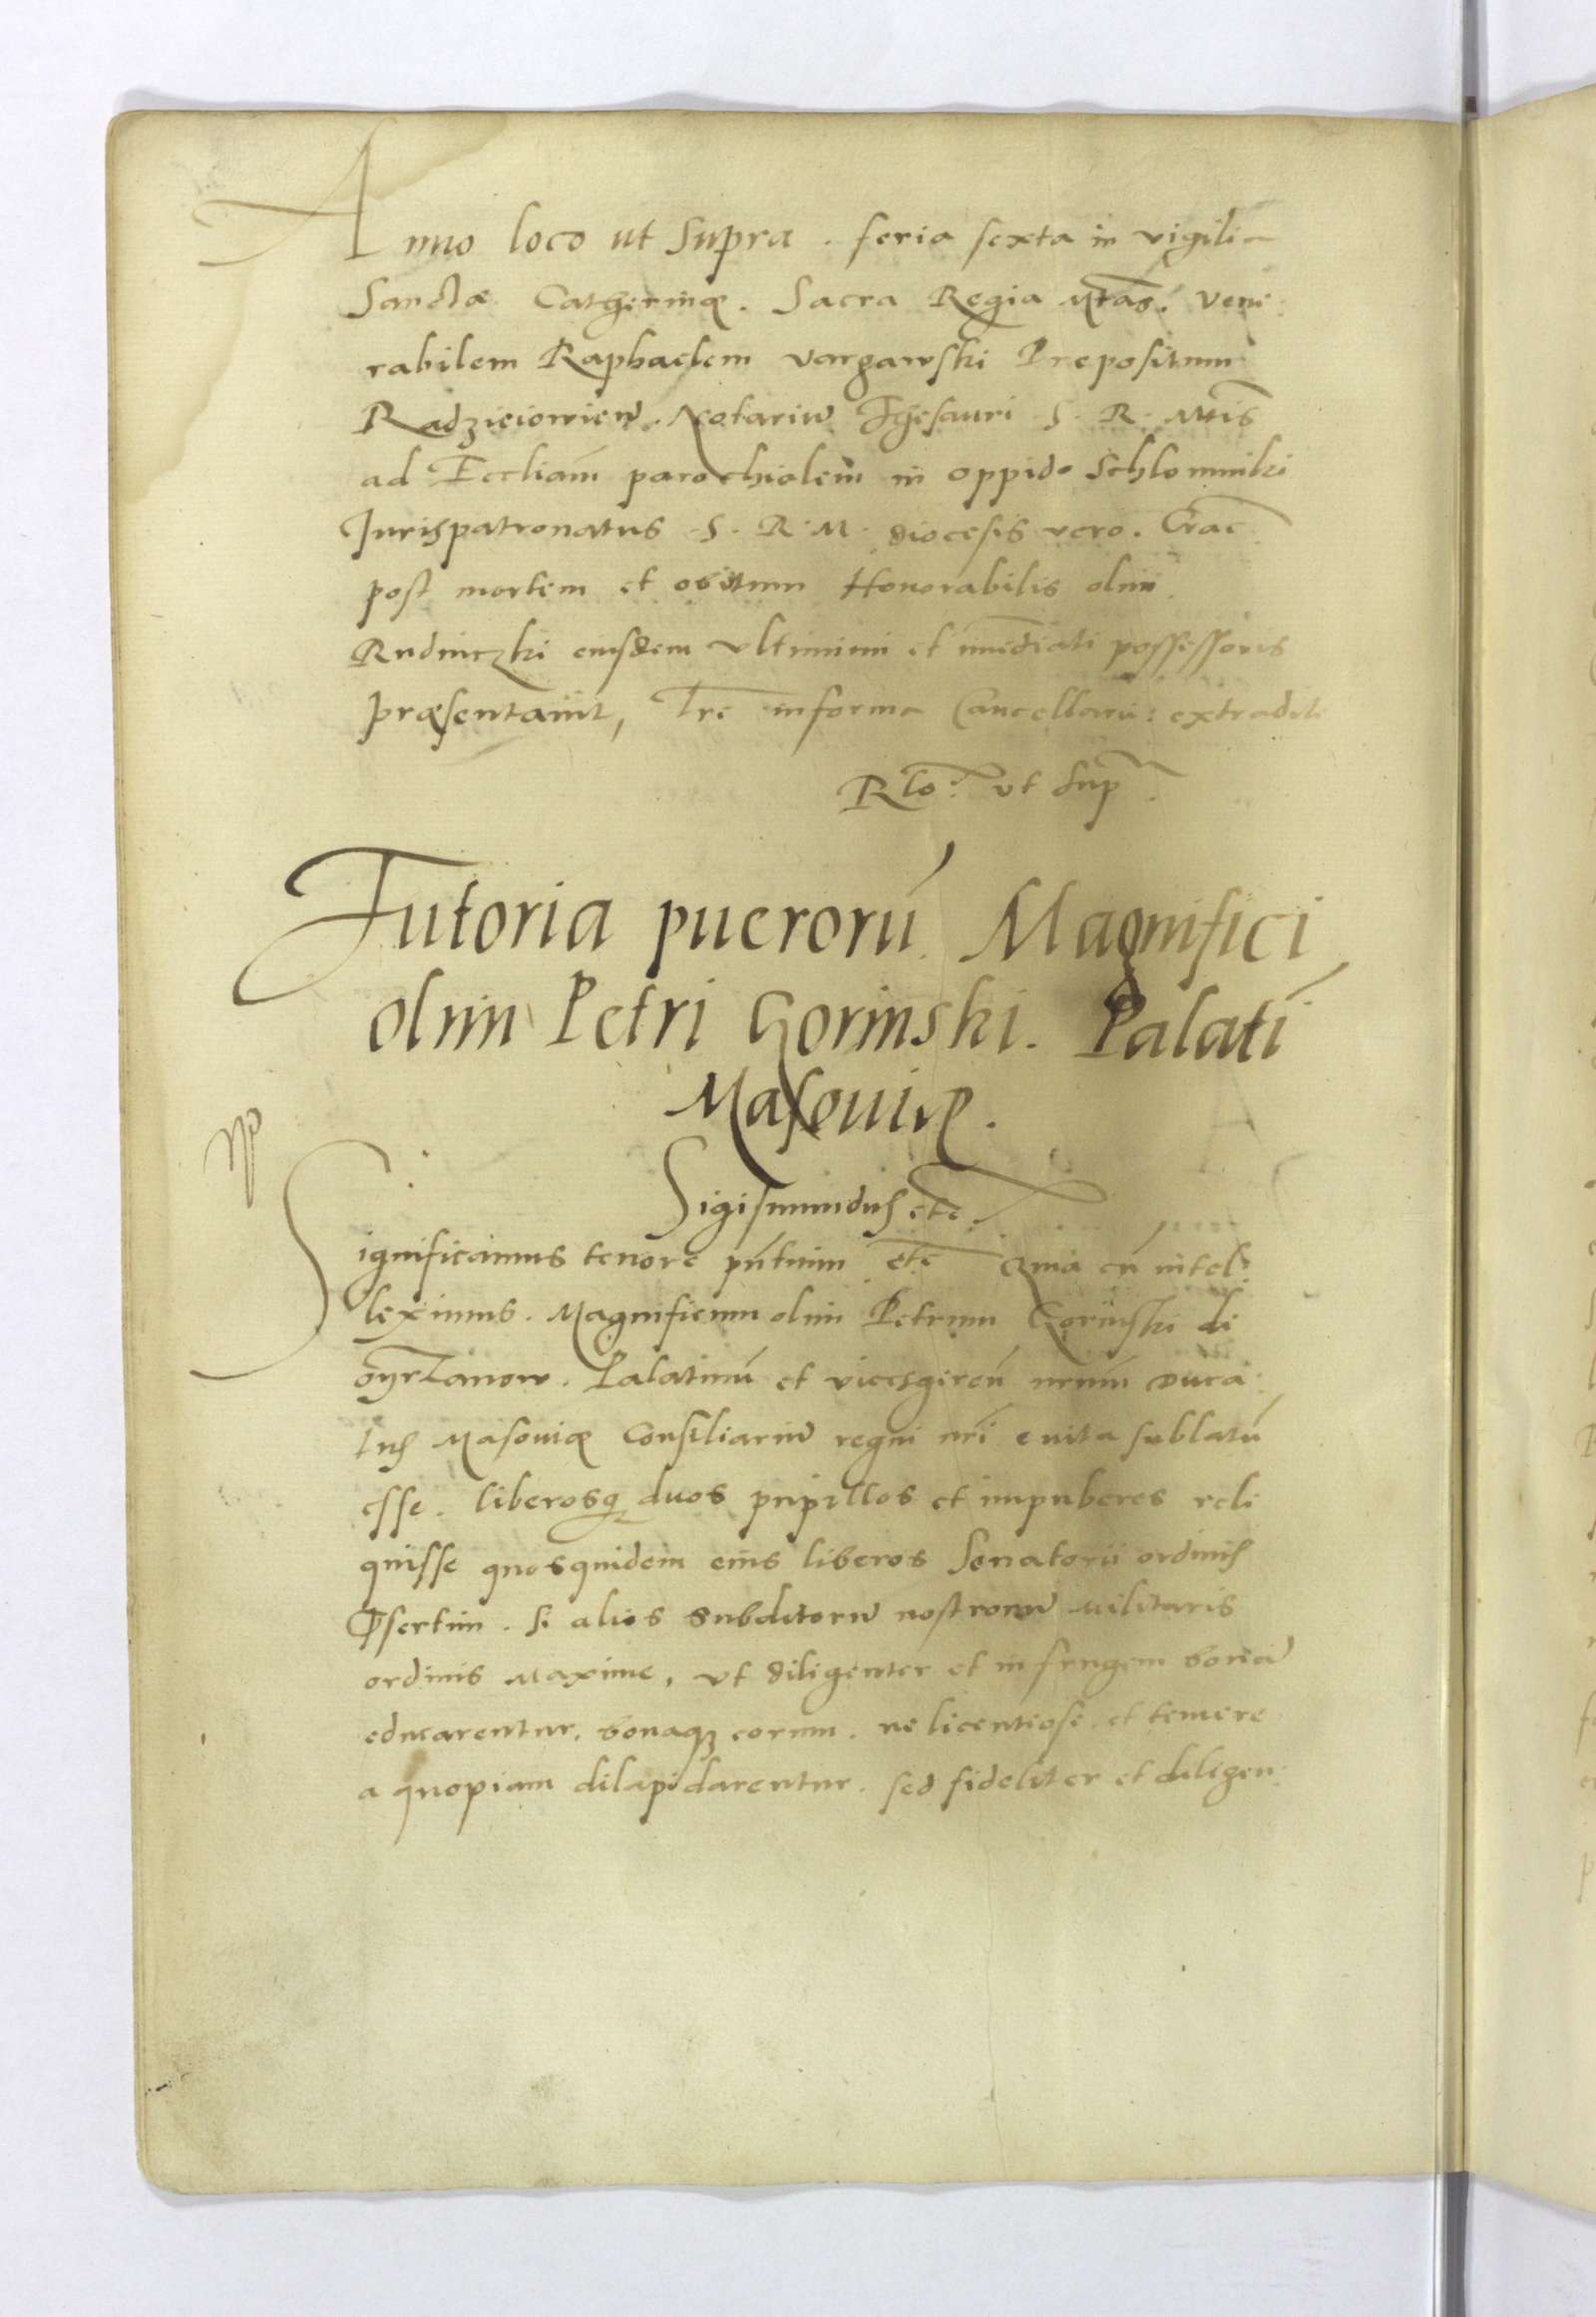 Anno loco ut Supra. feria sexta in vigilia
Sanctæ Catherinę. Sacra Regia Mtas. Vene
rabilem Raphaelem vargawski Prepositum
Radzieiowien̄. Notariū Thesauri S. R. Mtis
ad Eccliam̄ parochialem in oppido Schlomniki
Jurispatronatus S. R. M. diocesis vero. Crac̄
post mortem et obitum Honorabilis olim
Rudniczki eiusdem vltimimi et im̄ediati possessoris
præsentauit, Lr̄e in forma Cancellarie: extradite
Rlo. vt sup̄
Tutoria puerorū Magnifici
olim Petri Gorinski. Palatī
Masouię.
Np
Sigismundus etc.
Significamus tenore pn̄tium etc̄ Quia cū intel
leximus. Magnificum olim Petrum Gorinski de
oyrzanow. Palatinū et vicesgeren̄ nrūm Duca
tus Masouię Consiliariū regni nr̄i e vita sublatū
esse. liberosq duos pupillos et impuberes reli
quisse quosquidem eius liberos Senatorii ordinis
p̄sertim. si alios subditorū nostrorū militaris
ordinis maxime, vt diligenter et in frugem bonā
educarentur. bonaqȝ eorum. ne licentiose et temere
a quopiam dilapidarentur. sed fideliter et diligen